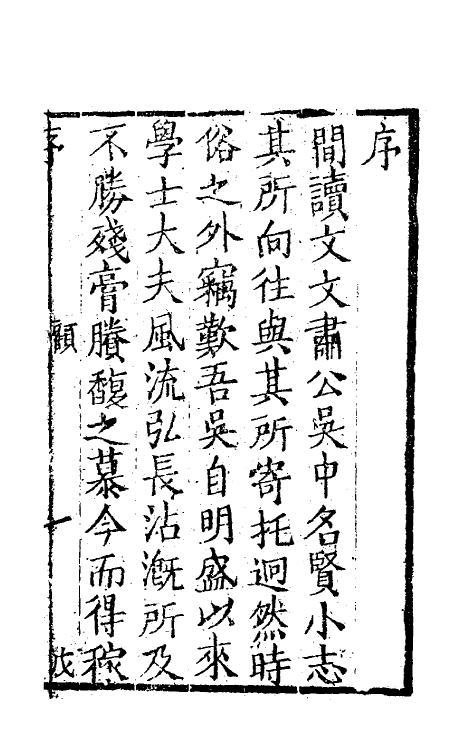 序
間讀文文肅公吳中名賢小志
其所向往與其所寄托迥然時
俗之外竊歎吾吳自明盛以來
學士大夫風流弘長沾溉所及
不勝殘膏賸馥之慕今而得稼
序 顧 一